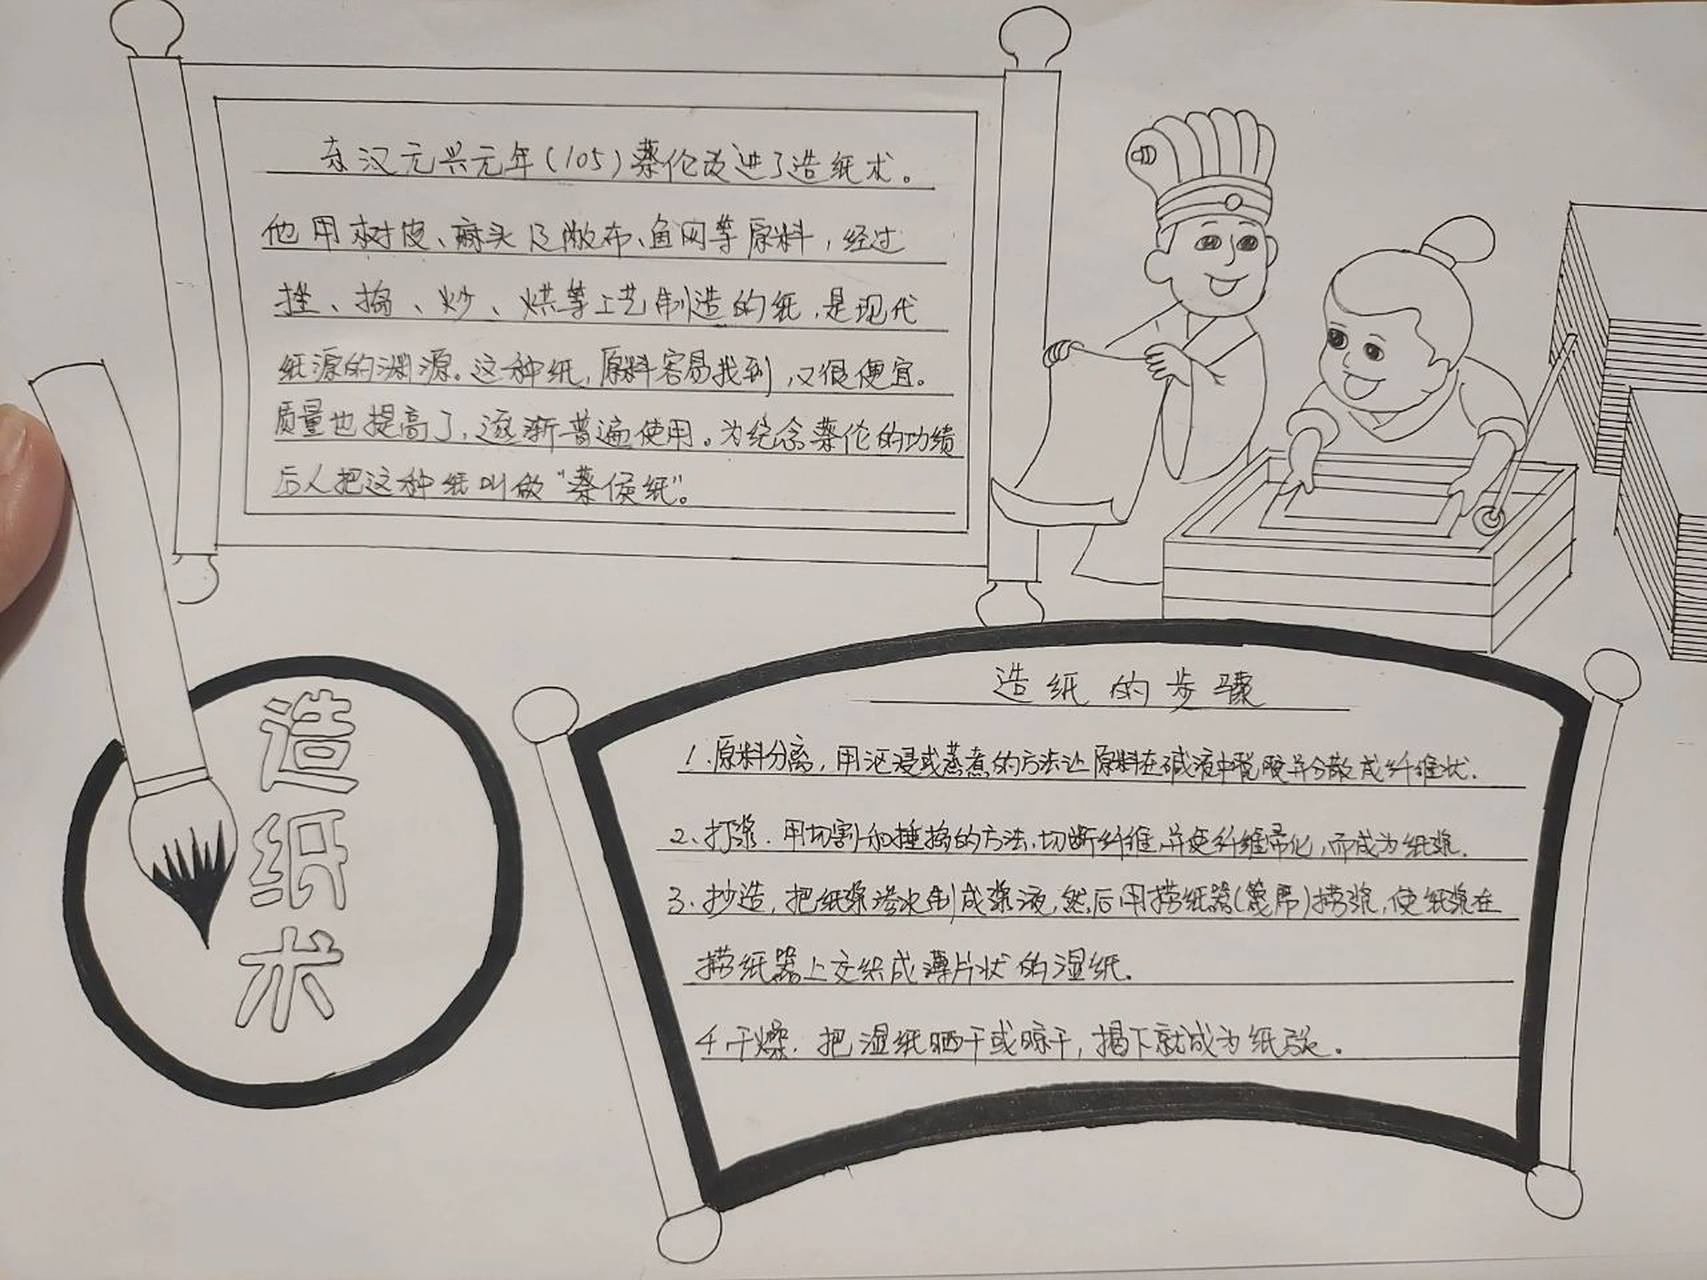 东汉元兴元年(105)蔡伦改进了造纸术。
他用树皮、麻头及敝布、鱼网等原料,经过
挫、捣、炒、烘等工艺制造的纸,是现代
纸源的渊源。这种纸,原料容易找到,又很便宜。
质量也提高了,逐渐普遍使用。为纪念蔡伦的功绩
后人把这种纸叫做“蔡侯纸”。
造纸术
造纸的步骤
1.原料分离,用沤浸或蒸煮的方法让原料在碱液中脱胶并分散成纤维状.
2、打浆.用切割和捶捣的方法,切断纤维,并使纤维帚化,而成为纸浆.
3.抄造,把纸浆渗水制成浆液,然后用捞纸器(篾席)捞浆,使纸浆在
捞纸器上交织成薄片状的湿纸.
4.干燥.把湿纸晒干或晾干,揭下就成为纸张。